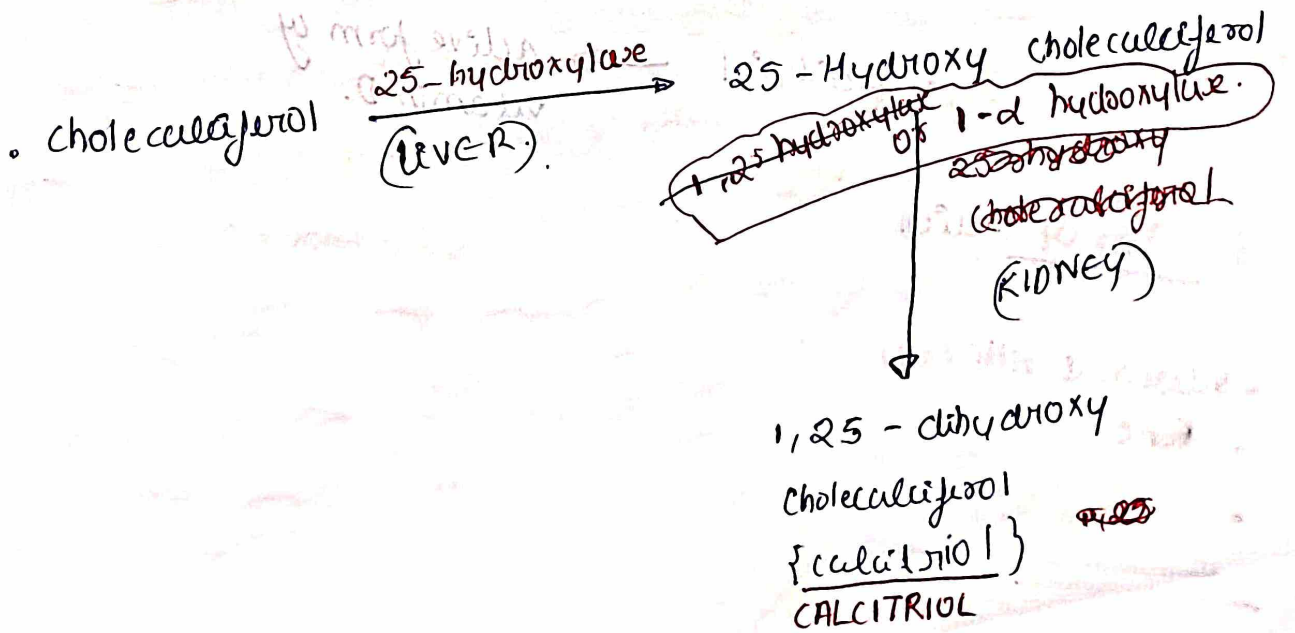 25-hydroxylase
25-Hydroxy cholecalciferol
• cholecalciferol
(LIVER).
1,25 hydroxylase or 1-α hydroxylase.
25-hydroxy
cholecalciferol
(KIDNEY)
1,25 - dihydroxy
cholecalciferol
1,25
{calcitriol}
CALCITRIOL